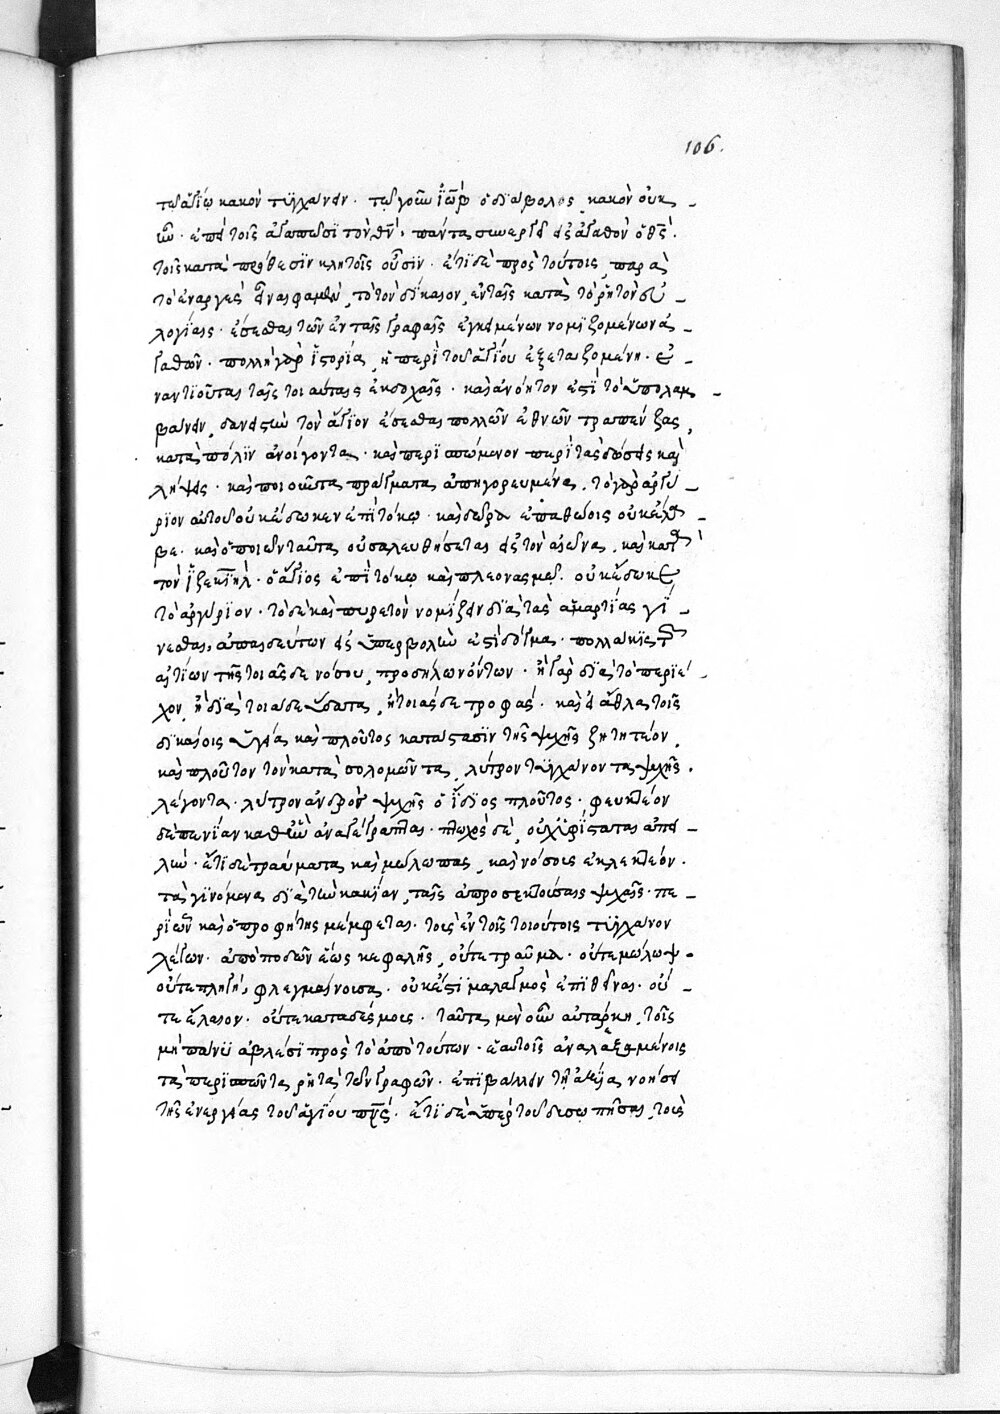 106.
τῶ ἁγίῳ κακὸν τυγχάνειν. τῶ γοῦν ἰὼβ ὁ διάβολος, κακὸν οὐκ
ἦν. ἐπεὶ τοῖς ἀγαπῶσι τὸν θν̄, πάντα συνεργεῖ εἰς ἀγαθὸν ὁ θς̄.
τοῖς κατὰ πρόθεσιν κλητοῖς οὖσιν. ἔτι δὲ πρὸς τούτοις, παρὰ
τὸ ἐναργὲς εἶναι φαμὲν, τὸ τὸν δίκαιον, ἐν ταῖς κατὰ τὸ ῥητὸν εὐ
λογίαις. ἔσεσθαι τῶν ἐν ταῖς γραφαῖς ἐγκειμένων νομιζομένων ἀ
γαθῶν. πολλὴ γὰρ ἱστορία, ἡ περὶ τοῦ ἁγίου ἐξεταζομένη. ἐ
ναντιοῦται ταῖς τοιαύταις ἐκδοχαῖς. καὶ ἀνόητον ἐστὶ τὸ ὑπολαμ
βάνειν, δανειστὴν τὸν ἅγιον ἔσεσθαι πολλῶν ἐθνῶν τραπέζας,
κατὰ πόλιν ἀνοίγοντα. καὶ περισπώμενον περὶ τὰς δόσεις καὶ
λήψεις. καὶ ποιοῦντα πράγματα ἀπηγορευμένα. τὸ γὰρ ἀργύ
ριον αὐτοῦ οὐκ ἔδωκεν ἐπὶ τόκῳ. καὶ δῶρα ἐπ' ἀθώοις οὐκ ἔλα
βε. καὶ ὁ ποιῶν ταῦτα οὐ σαλευθήσεται εἰς τὸν αἰῶνα. καὶ κατὰ
τὸν ἰεζεκιὴλ. ὁ ἅγιος ἐπὶ τόκῳ καὶ πλεονασμῶ. οὐκ ἔδωκε
τὸ ἀργύριον. τὸ δὲ καὶ πυρετὸν νομίζειν διὰ τὰς ἁμαρτίας γί
νεσθαι, ἀπαιδεύτων εἰς ὑπερβολὴν ἐστὶ δόγμα. πολλάκις τῶν
αἰτίων τῆς τοιᾶσδε νόσου, προσήλων ὄντων. ἢ γὰρ διὰ τὸ περιέ
χον, ἢ διὰ τοιάδε ὕδατα, ἢ τοιάσδε τροφάς. καὶ εἰ ἆθλα τοῖς
δικαίοις ὑγεία καὶ πλοῦτος κατάστασιν τῆς ψυχῆς ζητητέον,
καὶ πλοῦτον τὸν κατὰ σολομῶντα, λύτρον τυγχάνοντα ψυχῆς.
λέγοντα. λύτρον ἀνδρὸς ψυχῆς ὁ ἴδιος πλοῦτος. φευκτέον
δὲ πενίαν καθ' ἣν ἀναγέγραπται. πτωχὸς δὲ, οὐχ ὑφίσταται ἀπει
λήν. ἔτι δὲ τραύματα καὶ μώλωπας, καὶ νόσοις ἐκλεκτέον.
τὰ γινόμενα διὰ τὴν κακίαν, ταῖς ἀπροσεκτούσαις ψυχαῖς. πε
ρὶ ὧν καὶ ὁ προφήτης μέμφεται. τοὺς ἐν τοῖς τοιούτοις τυγχάνον
λέγων. ἀπὸ ποδῶν ἕως κεφαλῆς, οὔτε τραῦμα. οὔτε μώλωψ.
οὔτε πληγὴ, φλεγμαίνουσα. οὐκ ἔστι μάλαγμος ἐπιθεῖναι. οὔ
τε ἔλαιον. οὔτε καταδέσμους. ταῦτα μὲν οὖν αὐτάρκη, τοῖς
μὴ πάνυ ἀβλέσι πρὸς τὸ ἀπὸ τούτων. ἑαυτοῖς ἀναλεξαμένοις
τὰ περισπῶντα ῥητὰ τῶν γραφῶν. ἐπιβάλλειν τῇ ἀξίᾳ νοήσει
τῆς ἐνεργείας τοῦ ἁγίου πνς̄. ἔτι δὲ ὑπὲρ τοῦ δυσωπῆσαι, τοὺς